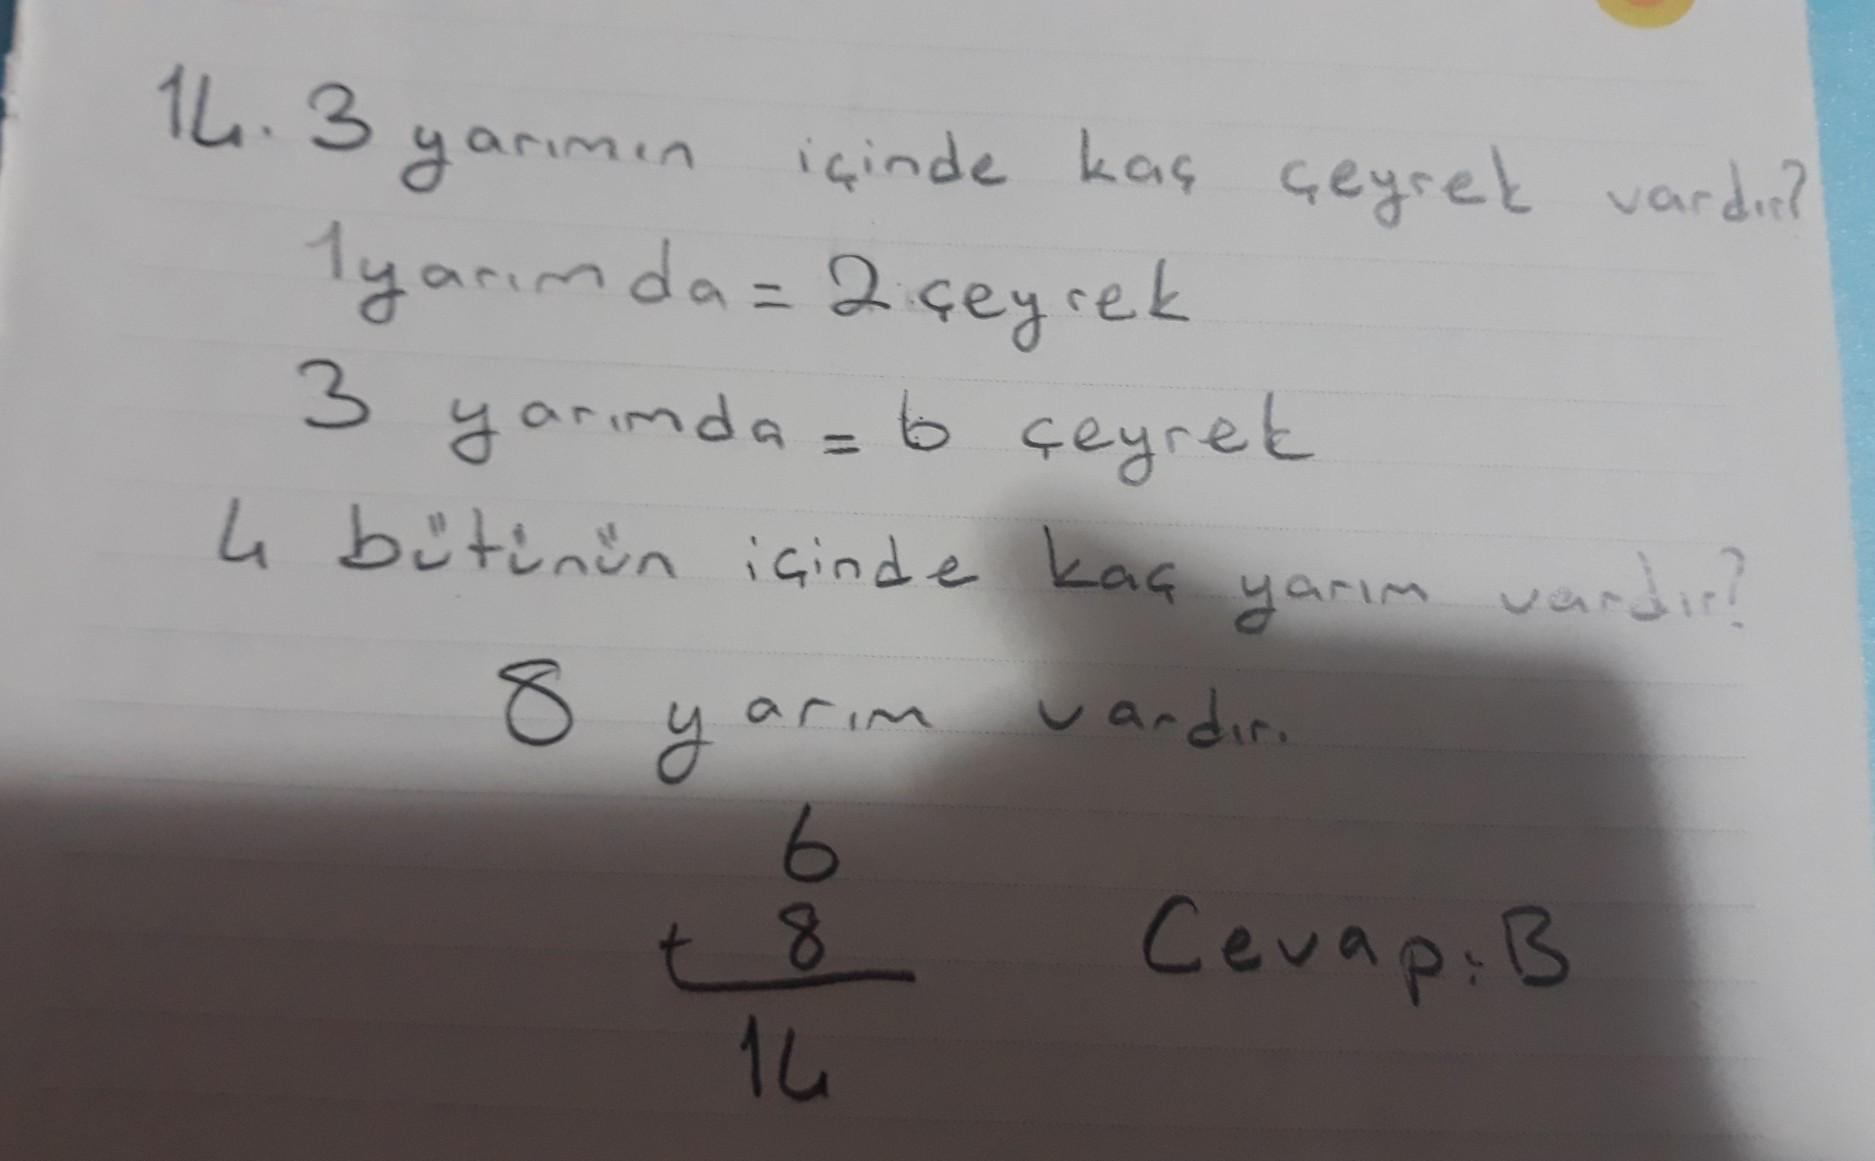 14. 3 yarımın içinde kaç çeyrek vardır?
1 yarımda = 2 çeyrek
3 yarımda = 6 çeyrek
4 bütünün içinde kaç yarım vardır?
8 yarım vardır.
6
+ 8
Cevap: B
14